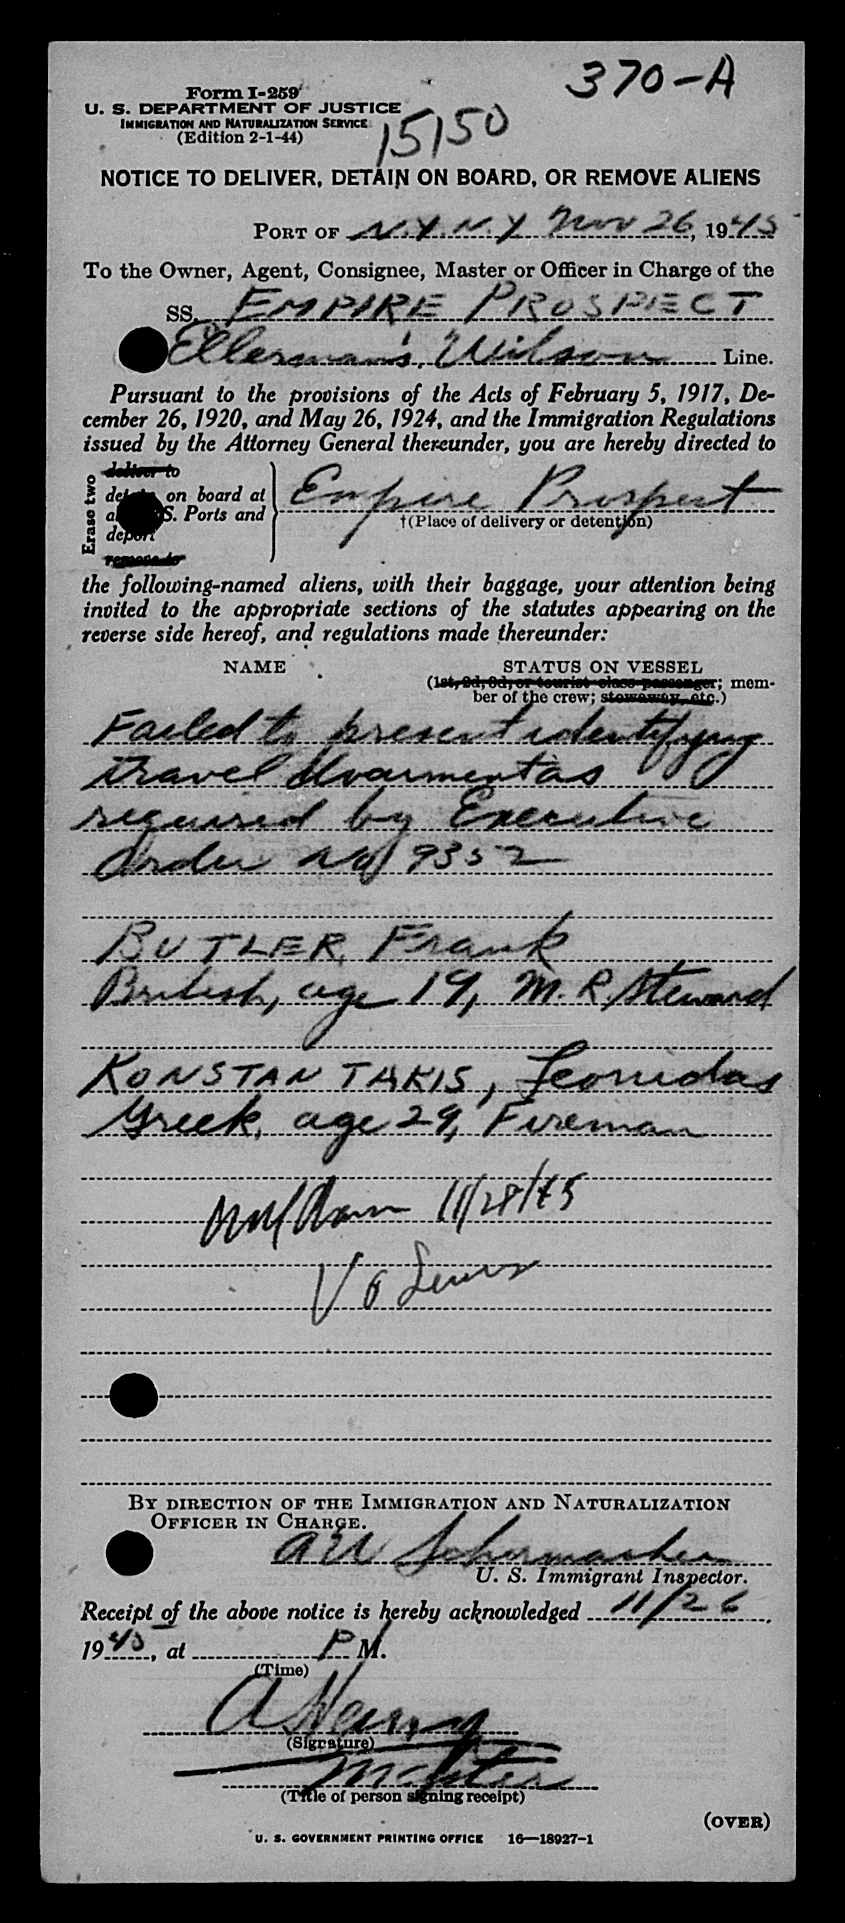 370-A
Form I-259
U. S. DEPARTMENT OF JUSTICE
IMMIGRATION AND NATURALIZATION SERVICE
(Edition 2-1-44)
15150
NOTICE TO DELIVER, DETAIN ON BOARD, OR REMOVE ALIENS
PORT OF N.Y. N.Y Nov 26, 1945
To the Owner, Agent, Consignee, Master or Officer in Charge of the
SS. EMPIRE PROSPECT
Ellerman's Wilson Line.
Pursuant to the provisions of the Acts of February 5, 1917, De-
cember 26, 1920, and May 26, 1924, and the Immigration Regulations
issued by the Attorney General thereunder, you are hereby directed to
Erase two
deliver to
on board at
S. Ports and
deport
remove to
Empire Prospect
†(Place of delivery or detention)
the following-named aliens, with their baggage, your attention being
invited to the appropriate sections of the statutes appearing on the
reverse side hereof, and regulations made thereunder:
NAME STATUS ON VESSEL
(1st, 2d, 3d, or tourist class passenger; mem-
ber of the crew; stowaway, etc.)
Failed to present identifying
travel documents as
required by Executive
Order No 9352
BUTLER, Frank
British, age 19, M. R. Steward
KONSTANTAKIS, Leonidas
Greek, age 29, Fireman
11/28/45
BY DIRECTION OF THE IMMIGRATION AND NATURALIZATION
OFFICER IN CHARGE.
U. S. Immigrant Inspector.
Receipt of the above notice is hereby acknowledged 11/26
1945, at P M.
(Time)
(Signature)
Master
(Title of person signing receipt)
(OVER)
U. S. GOVERNMENT PRINTING OFFICE 16—18927-1